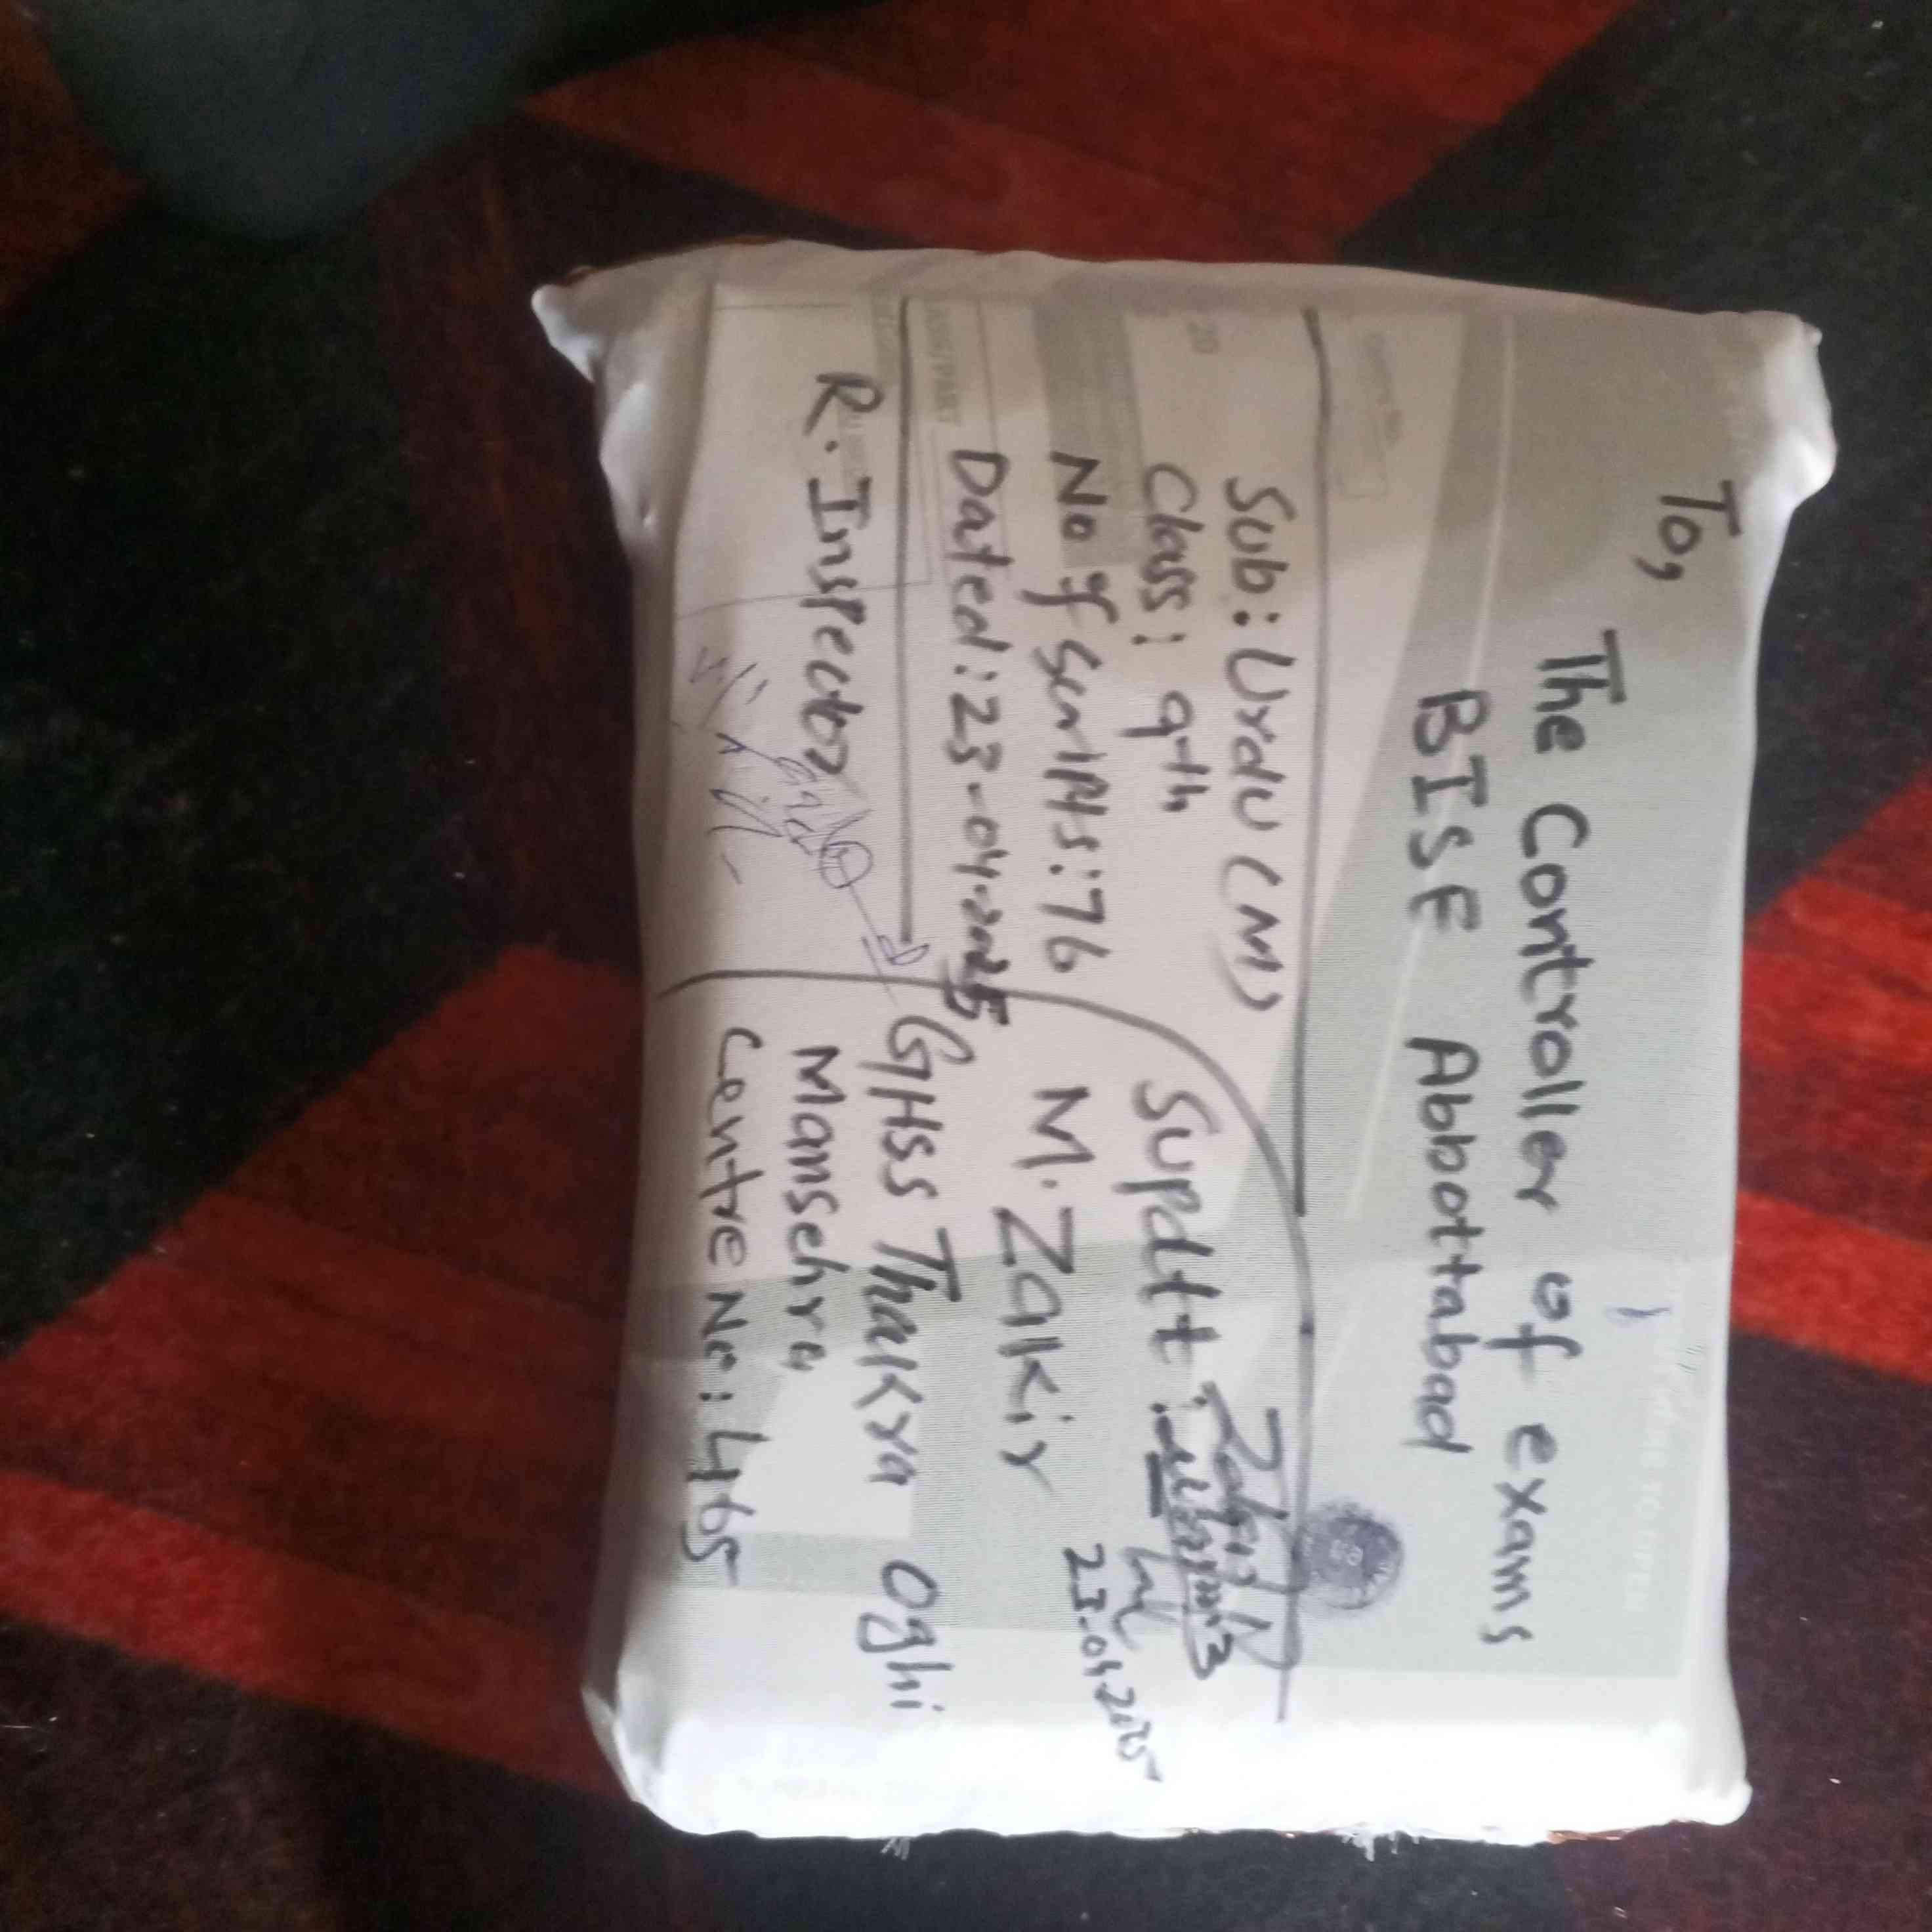 To,
The Controller of exams
BISE Abbottabad
Sub: Urdu (M)
Class: 9th
No of Scripts: 76
Dated: 23-04-2025
R. Inspector
Supdtt:
M. Zakir
23-04-2025
GHSS Thakra Oghi
Mansehra
Centre No: 465